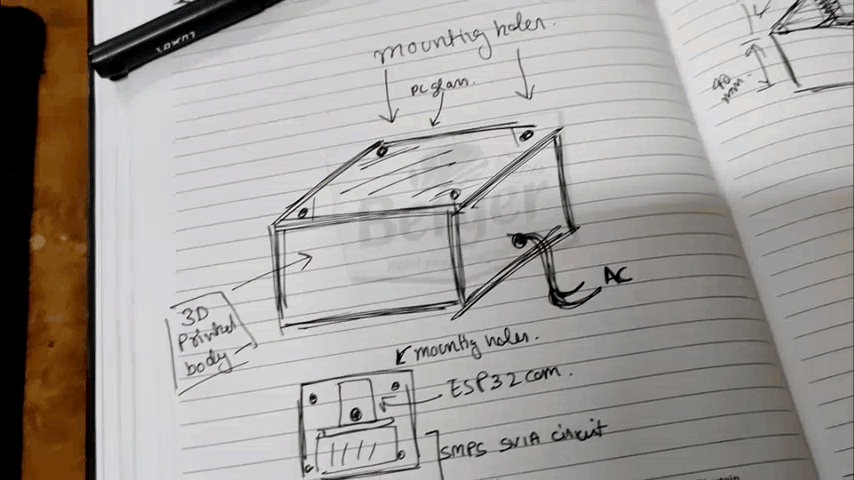 LUXOR
mounting holes.
PC glass.
Berger
AC
3D
Printed
body
mounting holes.
ESP32 cam.
SMPS 5V1A circuit
40
mm.